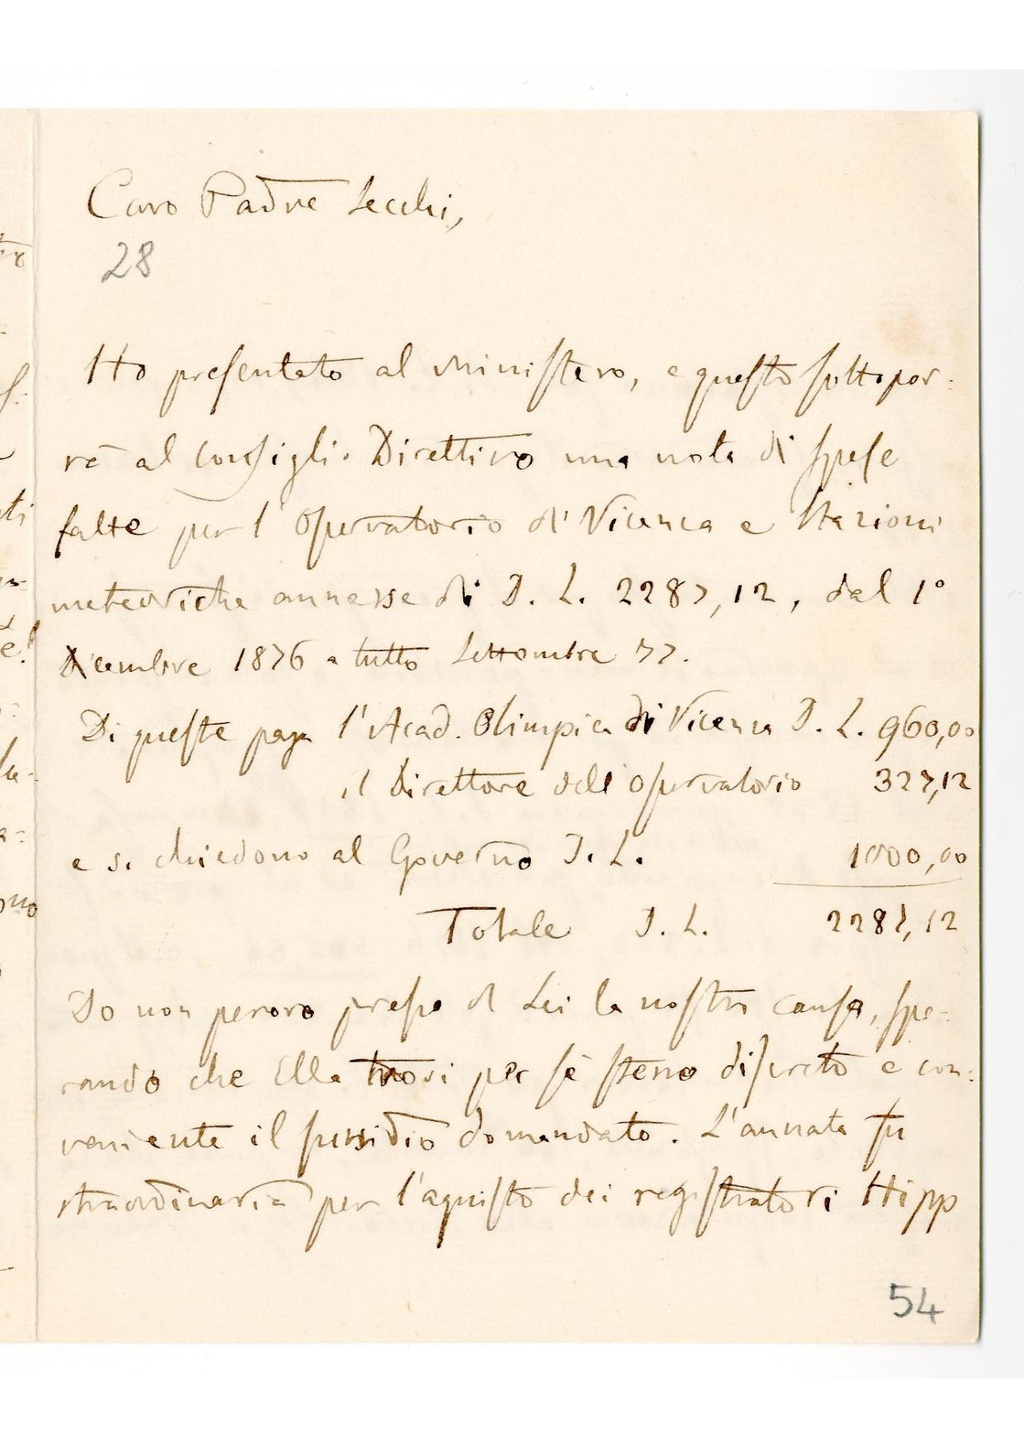 Caro Padre Secchi,
28
Ho presentato al Ministero, e questo sottopor-
rà al Consiglio Direttivo una nota di spese
fatte per l'Osservatorio di Vicenza e Stazioni
meteoriche annesse di I. L. 2287,12, dal 1°
Dicembre 1876 a tutto Settembre 77.
Di queste paga l'Acad. Olimpica di Vicenza I. L. 960,00
il Direttore dell'Osservatorio 327,12
e si chiedono al Governo I. L. 1000,00
Totale I. L. 2287,12
Io non peroro presso di Lei la nostra causa, spe-
rando che Ella trovi per sè stesso discreto e con-
veniente il sussidio domandato. L'annata fu
straordinaria per l'aquisto dei registratori Hipp
54